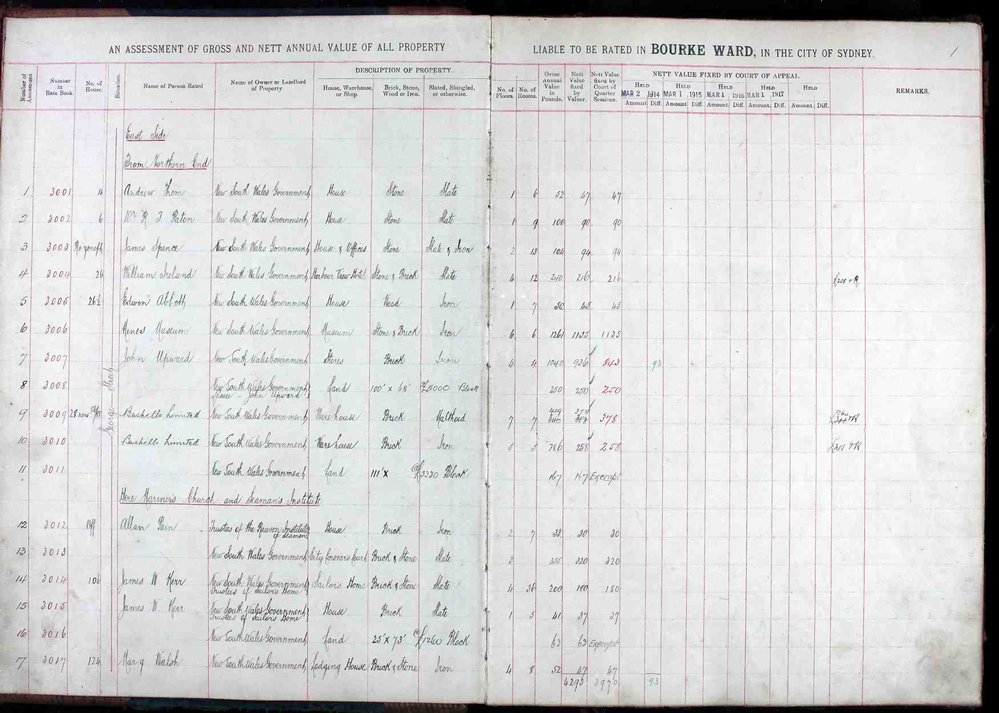 AN ASSESSMENT OF GROSS AND NETT ANNUAL VALUE OF ALL PROPERTY LIABLE TO BE RATED IN BOURKE WARD, IN THE CITY OF SYDNEY. 1
DESCRIPTION OF PROPERTY. NETT VALUE FIXED BY COURT OF APPEAL.
Number of Assessment Number in Rate Book. No. of House. Situation. Name of Person Rated Name of Owner or Landlord of Property. House, Warehouse, or Shop. Brick, Stone, Wood or Iron. Slated, Shingled, or otherwise. No. of Floors. No. of Rooms. Gross annual Value in Pounds. Nett Value fixed by Valuer. Nett Value fixed by Court of Quarter Sessions. HELD MAR 2 1914 HELD MAR 1 1915 HELD MAR 1 1916 HELD MAR 1 1917 HELD REMARKS.
Amount Diff. Amount. Diff. Amount. Diff. Amount. Diff. Amount. Diff.
East Side
From Northern End
George Street
1 3001 4 Andrew Thom New South Wales Government House Stone Slate 1 6 52 47 47
2 3002 6 New South Wales Government House Stone Slate 1 9 100 90 90
3 3003 James Spence New South Wales Government House & Offices Stone Slate & Iron 2 13 104 94 94
4 3004 26 William Ireland New South Wales Government Harbour View Hotel Stone & Brick Slate 4 12 240 216 216
5 3005 26½ Edwin Abbott New South Wales Government House Wood Iron 1 7 50 45 45
6 3006 Mines Museum New South Wales Government Museum Stone & Brick Iron 6 6 1261 1135 1135
7 3007 John Upward New South Wales Government Stores Brick Iron 4 4 1040 936 843 93
8 3008 New South Wales Government Lessee John Upward Land 100' x 68' £5000 Block 250 250 250
9 3009 Bushells Limited New South Wales Government Warehouse Brick Malthoid 7 7 419 378
10 3010 Bushells Limited New South Wales Government Warehouse Brick Iron 5 5 286 258 258
11 3011 New South Wales Government Land 111' x £3320 Block 167 167 Exempt
Here Mariners Church and Seaman's Institute
12 3012 Off Allan Pain Trustees of the Rawson Institute of Seamen House Brick Iron 2 7 33 30 30
13 3013 New South Wales Government City Coroners Court Brick & Stone Slate 2 320 320
14 3014 106 James W Kerr New South Wales Government Trustees of Sailors Home Sailors Home Brick & Stone Slate 4 200 180 180
15 3015 James W Kerr New South Wales Government Trustees of Sailors Home House Brick Slate 1 5 41 37 37
16 3016 New South Wales Government Land 25' x 73' £1260 Block 63 63 Exempt
17 3017 124 Mary Walsh New South Wales Government Lodging House Brick & Stone Iron 4 8 52 47 47
4293 3970 93